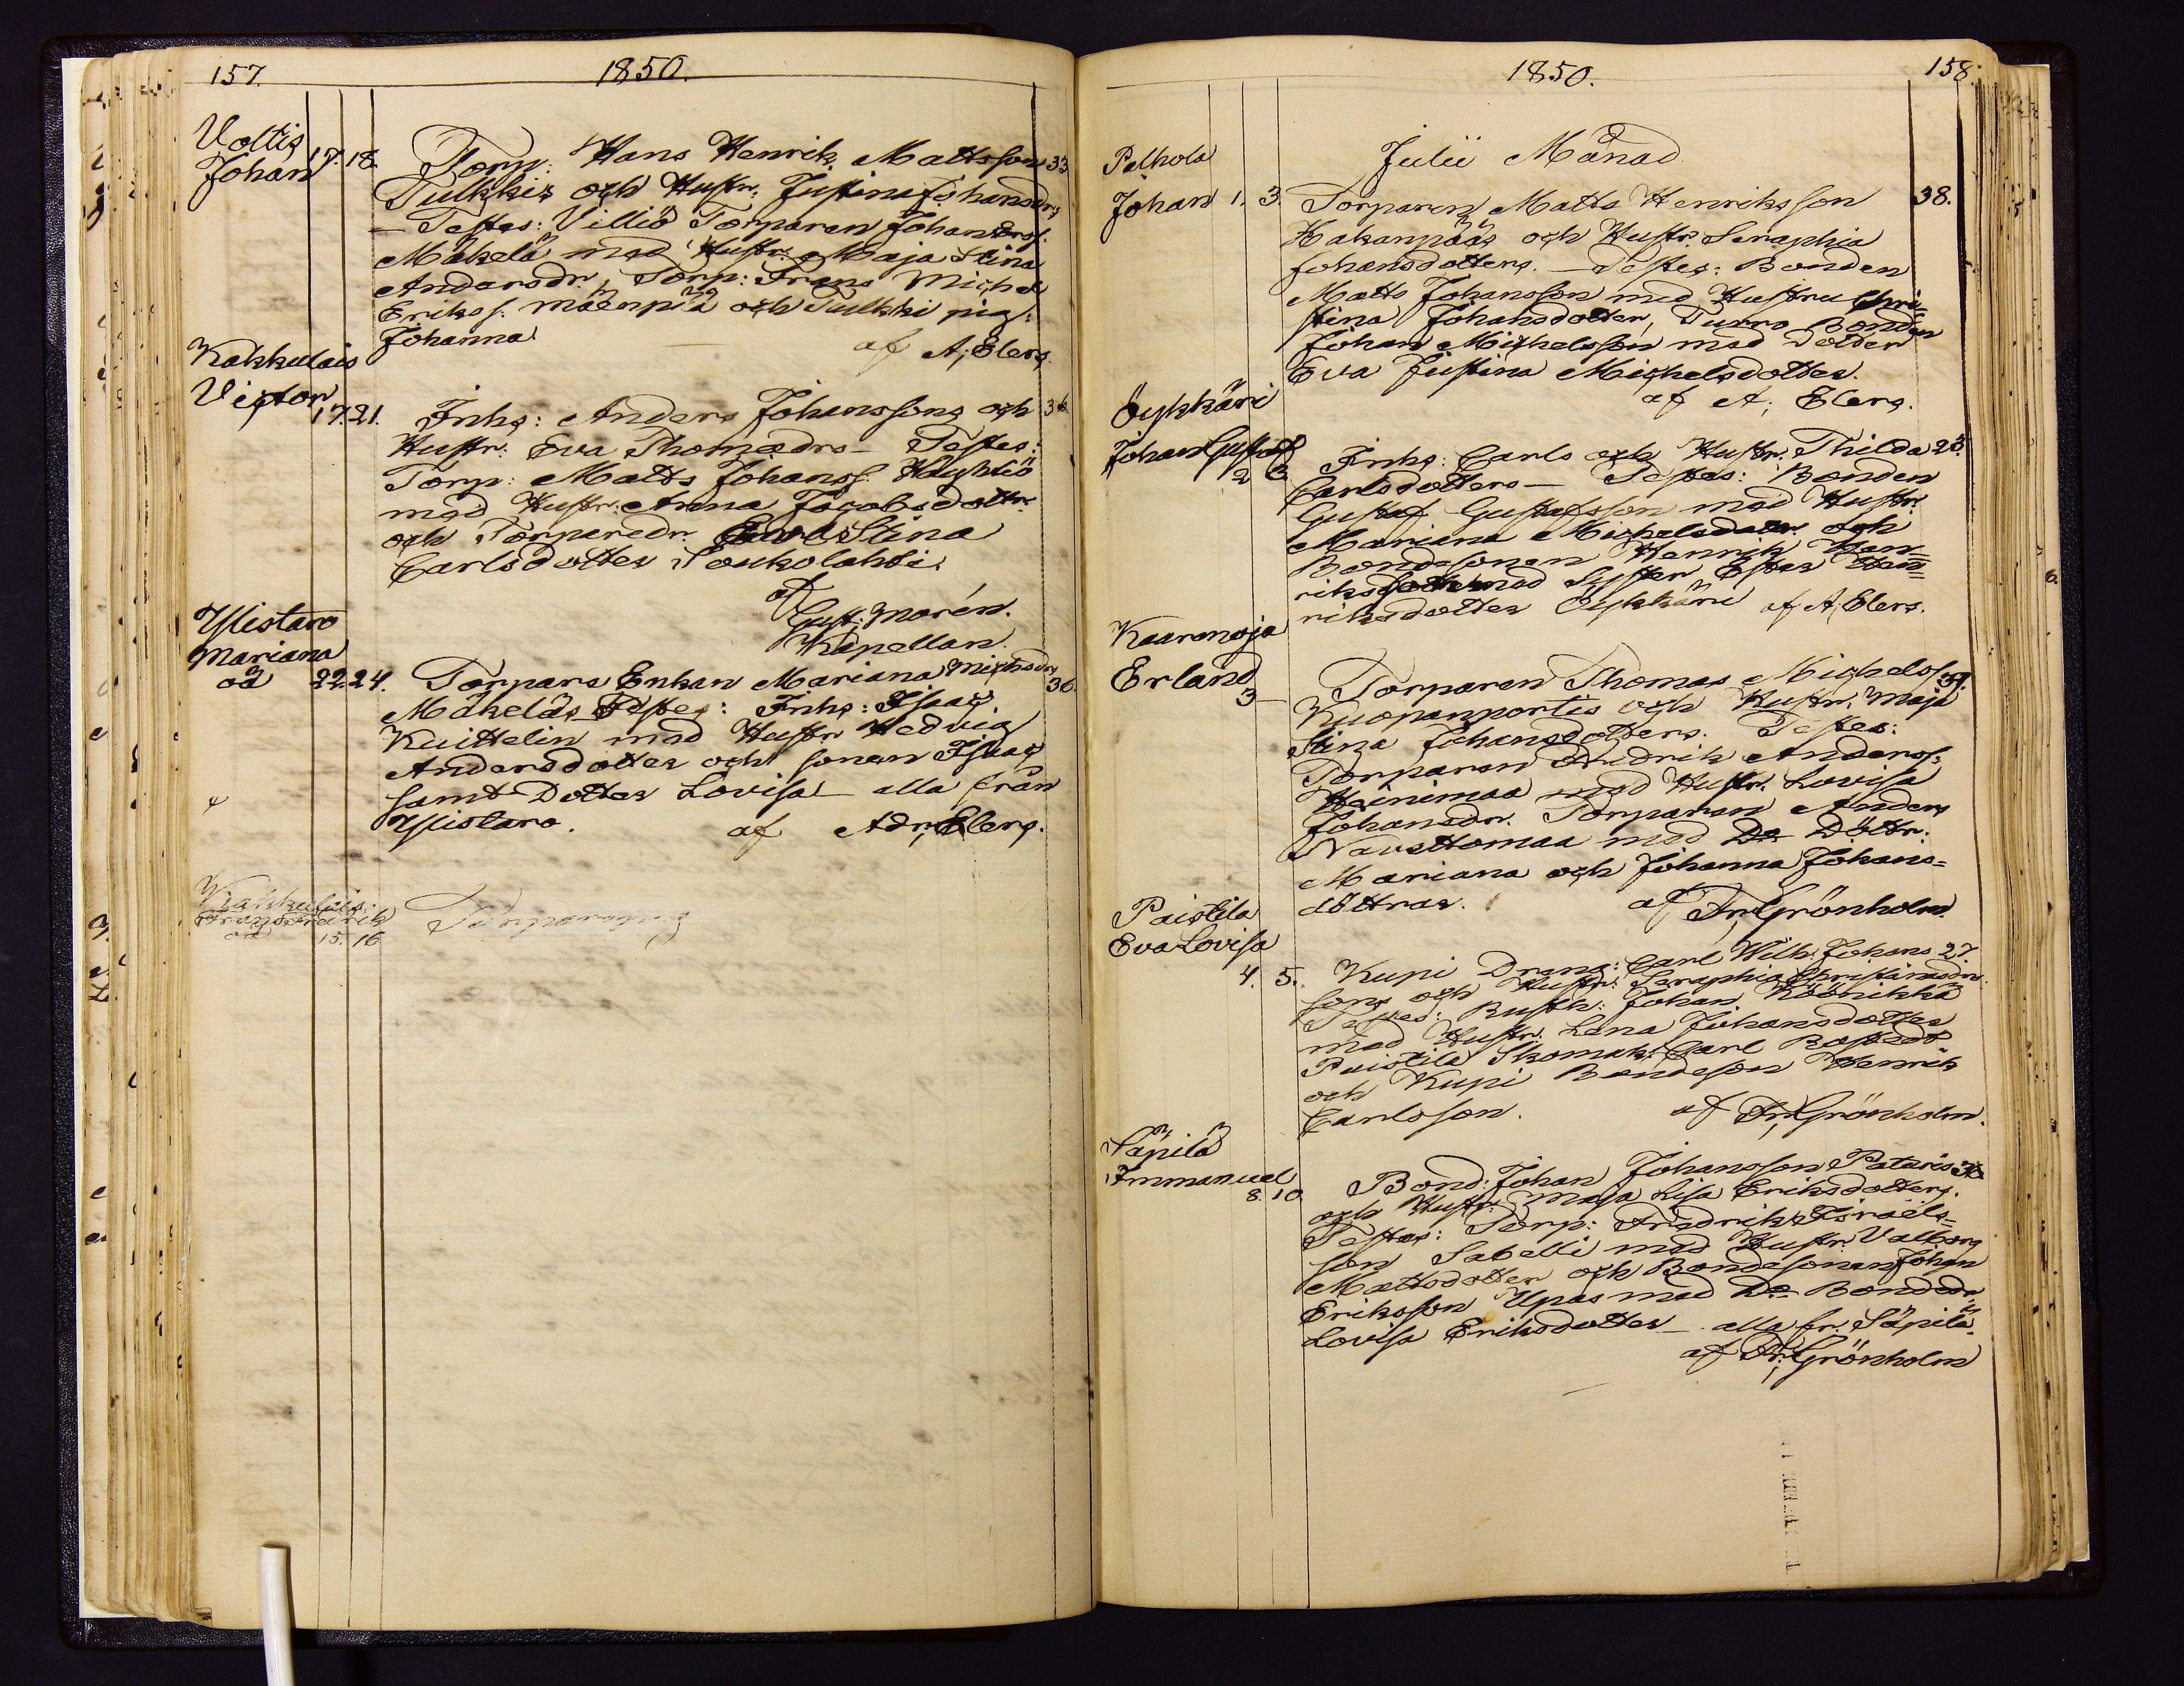 157.
1850.
Voltis
Johan 17. 18.
Torp: Hans Henrik Mattsson 33
Tulkkis och Hustr. Justina Johansdrs
— Testes: Villiö Torparen Johan Anders.
Mäkelä med Hustr. Maja Stina
Andersdr, Torp: Frans Michel
Erikss. Mäenpää och Tulkki pig.
Johanna — af A; Elers.
Kakkulais
Victor 17. 21.
Inhs: Anders Johanssons och 36
Hustr: Eva Thomædrs — Testes:
Torp: Matts Johanss. Häyhtiö
med Hustr: Anna Jacobsdottr
och Torparedr. Eva Stina
Carlsdotter Soukolahti
af
Gust: Morén.
Kapellan.
Ylistaro
Mariana
oä 22 24.
Torpare Enkan Mariana Michsdrs 36.
Mäkeläs Testes: Inhs: Isaac
Kuittelin med Hustr Hedvig
Andersdotter och sonen Isaac
samt Dotter Lovisa alla från
Ylistaro. af Adr; Elers.
Kakkulais:
Frans Fredrik
oä 15. 16
Torparen
1850.
158.
Julii Månad
Palhola
Johan 1. 3.
Torparen Matts Henriksson 38.
Hakanpääs och Hustr. Seraphia
Johansdotters. — Testes: Bonden
Matts Johansson med Hustru Chri-
stina Johansdotter, Turro Bonden
Johan Michelsson med Dotter
Eva Justina Michelsdotter.
af A; Elers.
Öykkäri
Johan Gustaf
2 3
Inhs: Carls och Hustr. Thilda 23.
Carlsdotters — Testes: Bonden
Gustaf Gustafsson med Hustr
Mariana Michelsdotr. och
Bondesonen Henrik Hen-
riksson med Syster Ester Hen-
riksdotter Öykkäri af A; Elers.
Kaaronoja
Erland
3 —
Torparen Thomas Michelss. 39.
Kuopanportis och Hustr: Maja
Stina Johansdotters. Testes:
Torparen Fredrik Anderss.
Heinimaa med Hustr. Lovisa
Johansdr. Torparen Anders
Navettomaa med Do Döttr.
Mariana och Johanna Johans-
döttrar. af Fr; Grönholm
Paistila
Eva Lovisa
4. 5.
Kupi Dräng: Carl Wilh. Johans 27.
sons och Hustr: Seraphia Christiansdrs.
Testes: Rusth: Johan Köönikkä
med Hustr. Lena Johansdotter
Paistila Skomak: Carl Rostedt
och Kupi Bondeson Henrik
Carlsson. af Fr; Grönholm.
Säpilä
Immanuel
8. 10
Bond: Johan Johansson Pataris 36
och Hustr. Maja Lisa Eriksdotters.
Testes: Torp: Fredrik Israëls-
son Sabelli med Hustr Valborg
Mattsdotter och Bondesonen Johan
Eriksson Upas med Do Bondedr
Lovisa Eriksdotter — alla fr. Säpilä.
af Fr; Grönholm